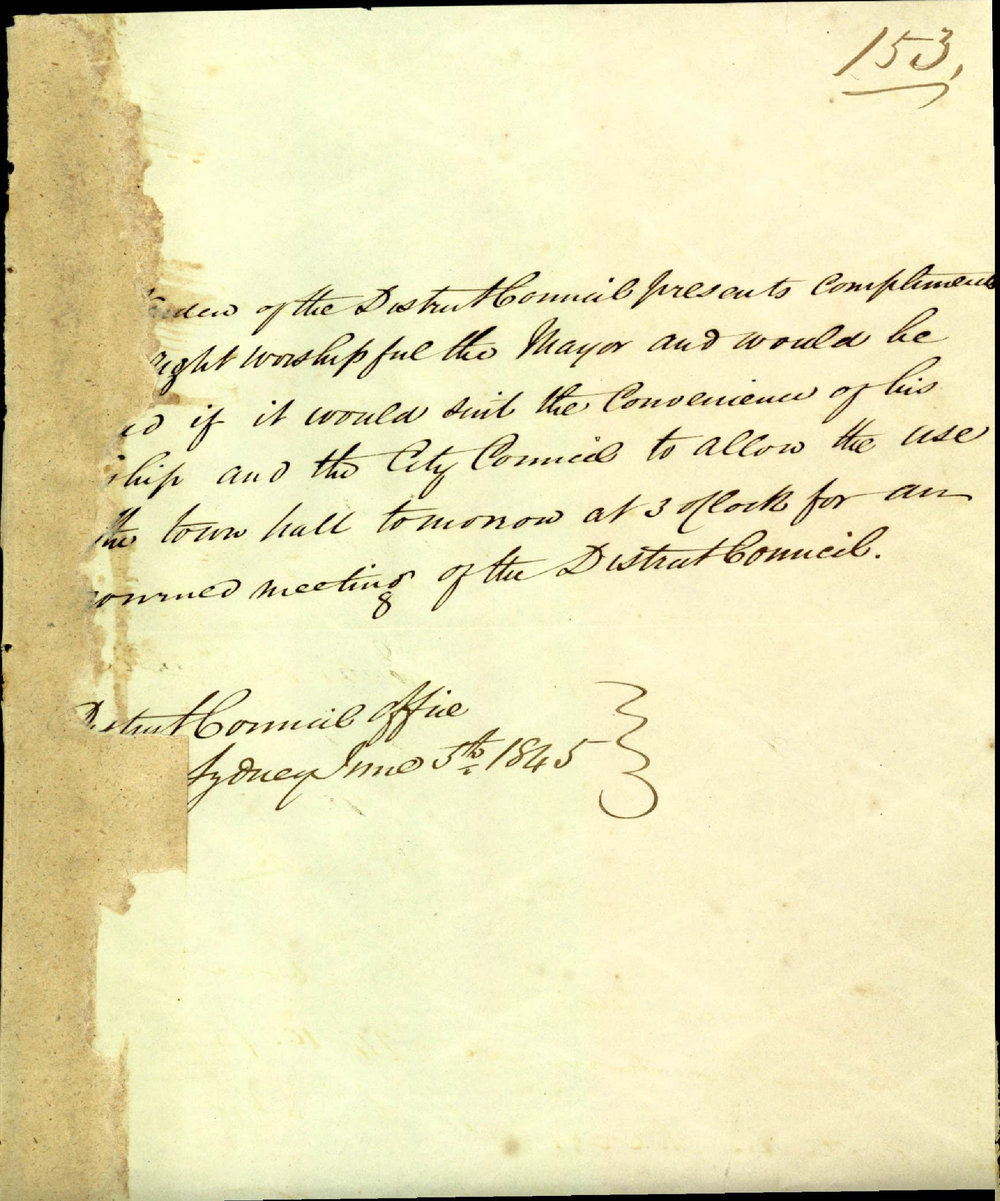 153,
of the District Council presents compliments
right worshipful the Mayor and would be
if it would suit the Convenience of his
ship and the City Council to allow the use
the town hall tomorrow at 3 oClock for an
ourned meeting of the District Council.
District Council Office
Sydney June 5th 1845